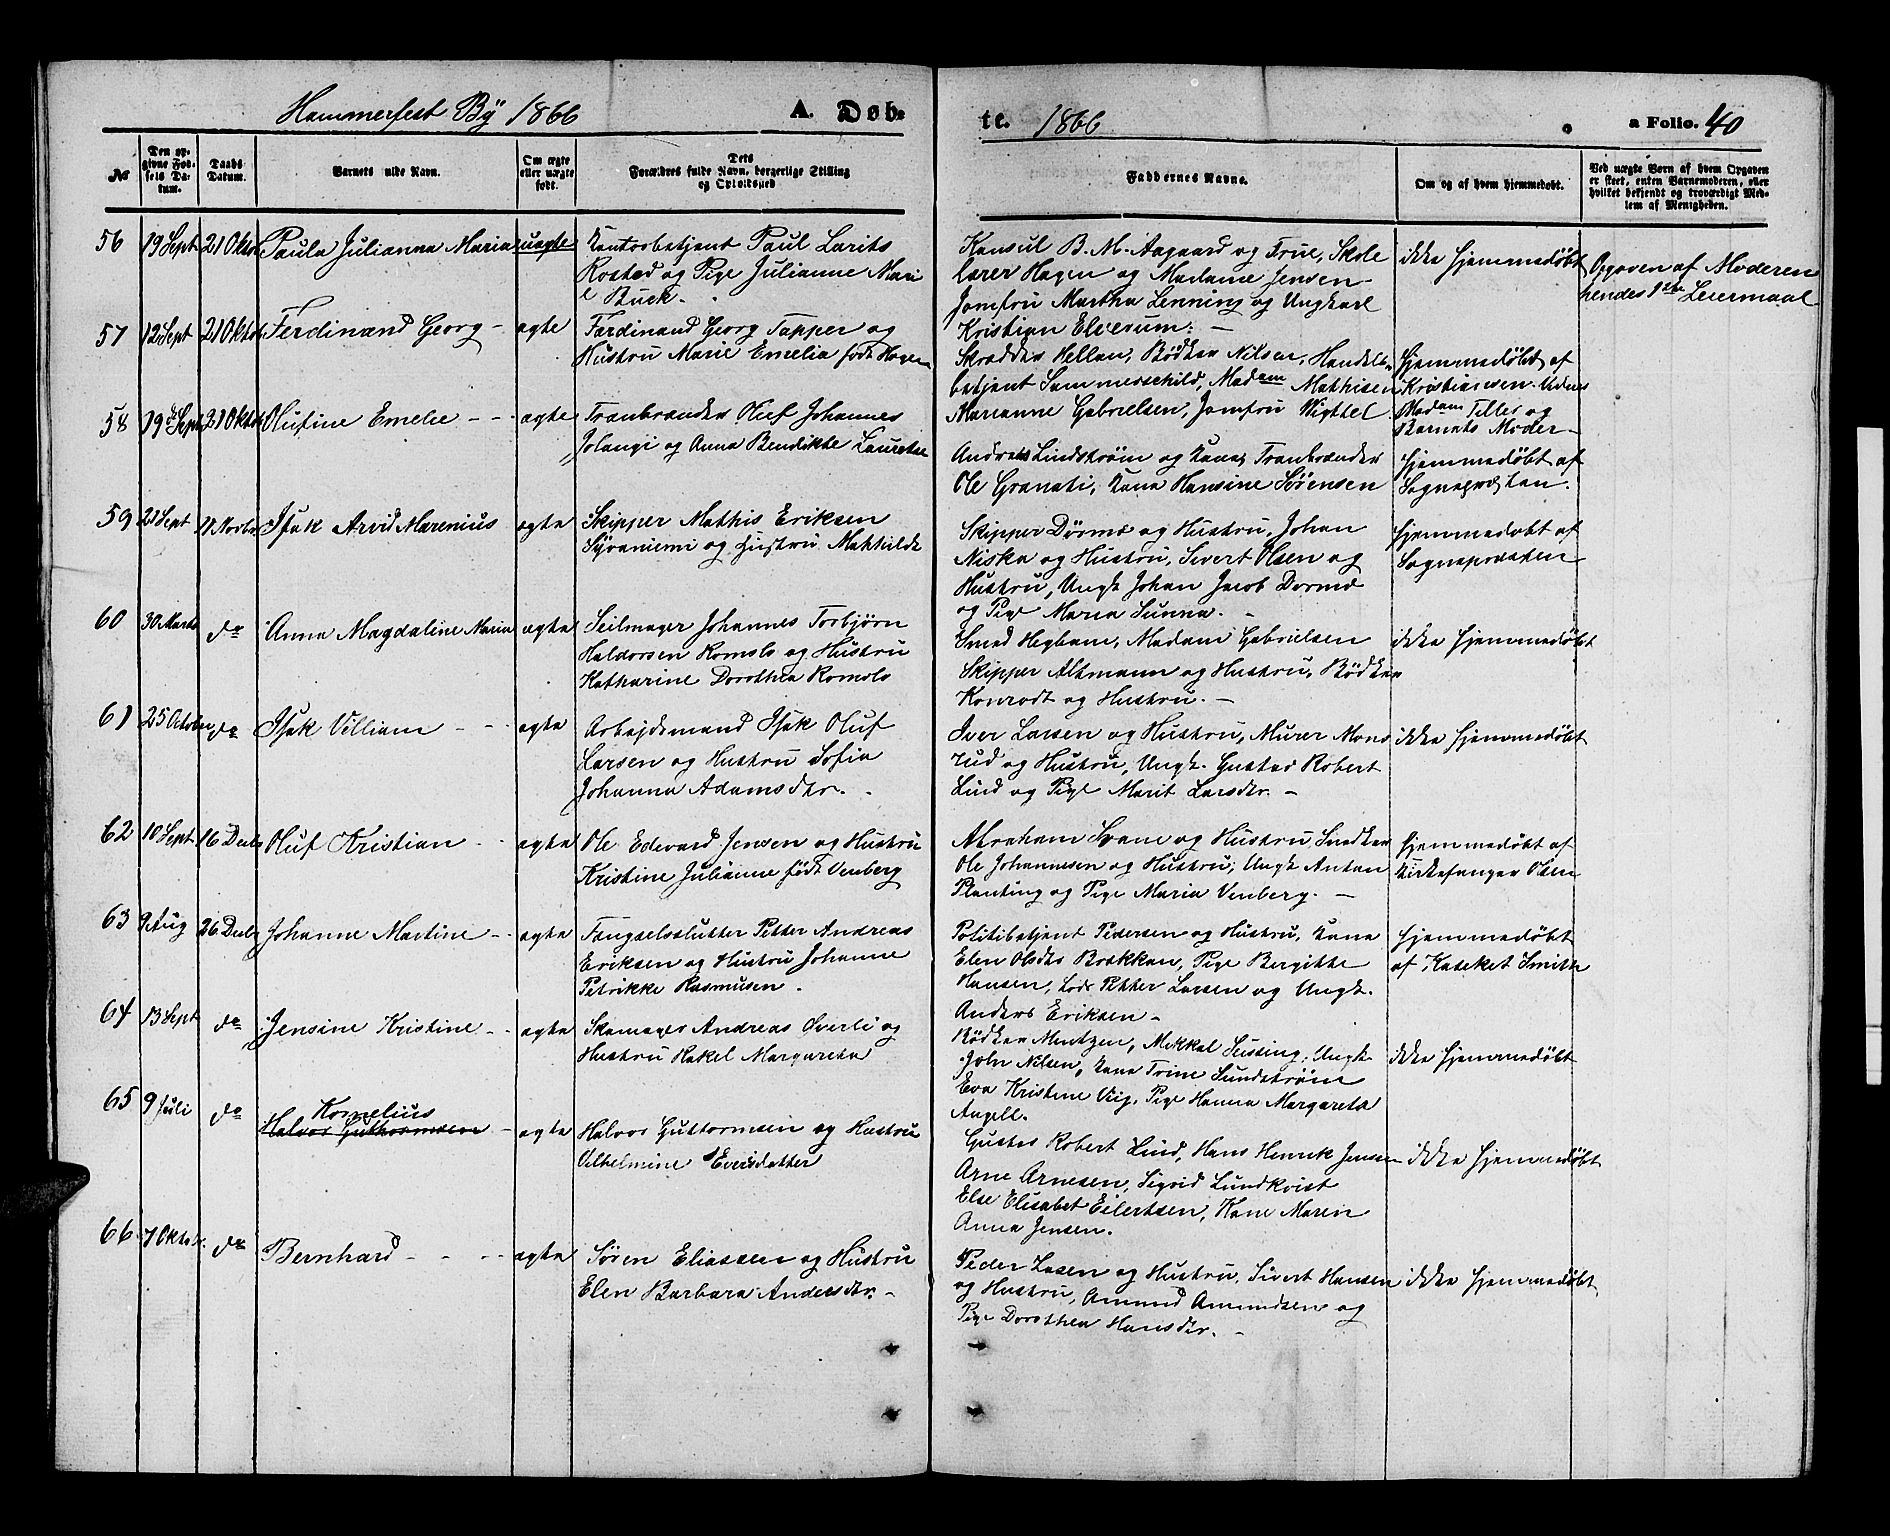 Hammerfest By 1866
A. Døb-
te. 1866
a Folio. 40
No
Den op-
givne Fød-
sels Da-
tum.
Daabs
Datum.
Barnets fulde Navn.
Om ægte
eller uægte
født.
Dets
Forældres fulde Navn, borgerlige Stilling
og Opholdssted
Faddernes Navne.
Om og af hvem hjemmedøbt.
Ved uægte Børn af hvem Opgaven
er skeet, enten Barnemoderen, eller
hvilket bekjendt og troværdigt Med-
lem af Menigheden.
56 19 Sept 21 Oktbr Paula Julianna Maria uægte Kontorbetjent Paul Larits
Rostad og Pige Julianne Mari
e Buck.
Konsul B. M. Aagaard og Frue, Skole
lærer Hagen og Madame Jensen
Jomfru Martha Lenning og Ungkarl
Kristian Elverum.
ikke hjemmedøbt
Opgaven af Moderen
hendes 1ste Leiermaal
57 12 Sept 21 Oktbr Ferdinand Georg ægte Ferdinand Georg Tapper og
Hustru Marie Emelia født Hagen
Skrædder Hellan, Bødker Nilsen, Handels-
betjent Sommerschild, Madam Mathisen
Marianne Gabrielsen, Jomfru Wigttel
hjemmedøbt af
Kristiansen. Udnes
Madam Tiller og
Barnets Moder
58 19 Sept 21 Oktbr Olufine Emelie ægte Tranbrænder Oluf Johannes
Jolangi og Anna Bendikte Lauretse
Andreas Lindstrøm og Kone, Tranbrænder
Ole Granati, Kone Hansine Sørensen
hjemmedøbt af
Sognepræsten.
59 21 Sept 11 Novbr Isak Arvid Marenius ægte Skipper Mathis Eriksen
Syvaniemi og Hustru Mathilde
Skipper Dørmæ og Hustru, Johan
Niska og Hustru, Sivert Olsen og
Hustru, Ungk Johan Jacob Dormæ
og Pige Maria Sunna.
hjemmedøbt af
Sognepræsten
60 30 Marts do Anna Magdaline Maria ægte Seilmager Johannes Torbjørn
Haldorsen Romslo og Hustru
Katharine Dorothea Romslo
Smed Hegbom, Madam Gabrielsen
Skipper Altmann og Hustru, Bødker
Konradt og Hustru.
ikke hjemmedøbt
61 25 October do Isak Villiam ægte Arbejdsmand Isak Oluf
Larsen og Hustru Sofia
Johanna Adamsdtr.
Iver Larsen og Hustru, Murer Mons
rud og Hustru, Ungk. Gustav Robert
Lind og Pige Marit Larsdtr.
ikke hjemmedøbt
62 10 Sept 16 Decbr Oluf Kristian ægte Ole Edevard Jensen og Hustru
Kristine Julianne født Venberg
Abraham Svane og Hustru, Snedker
Ole Johannesen og Hustru, Ungk Anton
Planting og Pige Maria Venberg.
hjemmedøbt af
Kirkesanger Olsen
63 9 Aug 26 Decbr Johanne Martine ægte Fængselsslutter Petter Andreas
Eriksen og Hustru Johanne
Petrikke Rasmusen.
Politibetjent Pedersen og Hustru, Kone
Elen Olsdtr Brækken, Pige Bergitte
Hansen, Lods Petter Larsen og Ungk.
Anders Eriksen
hjemmedøbt
af Kateket Smith
64 13 Sept do Jensine Kristine ægte Skomager Andreas Overli og
Hustru Rakel Margareta
Bødker Mentzen, Mikkel Sussing, Ungk
John Nilsen, Kone Trine Sundstrøm
Eva Kristine Viig, Pige Hanna Margareta
Angell.
ikke hjemmedøbt
65 9 Juli do Kornelius
Halvor Guttormsen ægte Halvor Guttormsen og Hustru
Vilhelmine Eversdatter
Gustav Robert Lind, Hans Henrik Jensen
Arne Arnesen, Sigrid Lundkvist
Else Elisabet Eilertsen, Kone Maren
Anna Jensen.
ikke hjemmedøbt
66 7 Oktobr. do Bernhard ægte Søren Eliassen og Hustru
Elen Barbara Andersdtr.
Peder Lasen og Hustru, Sivert Hansen
og Hustru, Amund Amundsen og
Pige Dorothea Hansdtr.
ikke hjemmedøbt